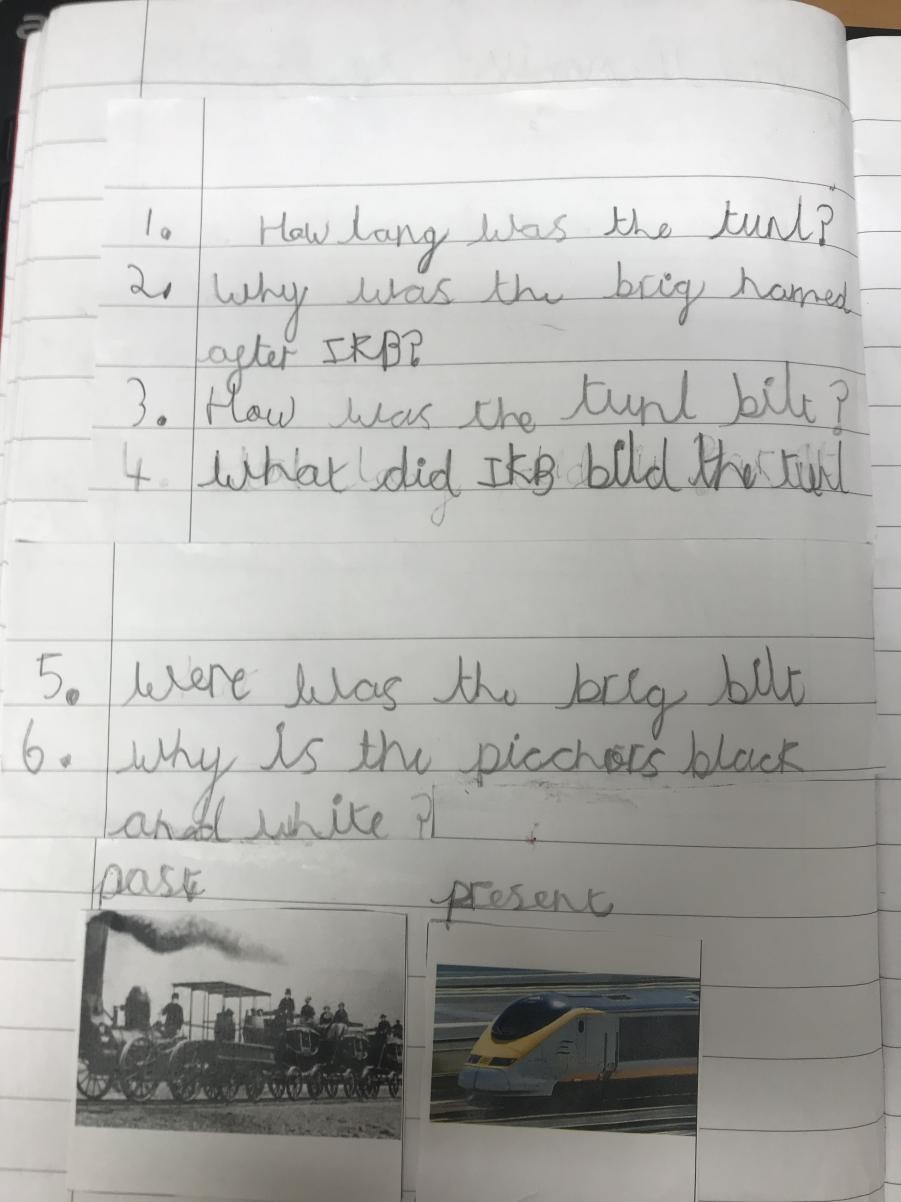 1. How lang was the tunl?
2. Why was the brig named
after IKB?
3. How was the tunl bilt?
4. What did IKB bild the tunl
5. Were was the brig bilt
6. why is the picchors black
and white?
past
present